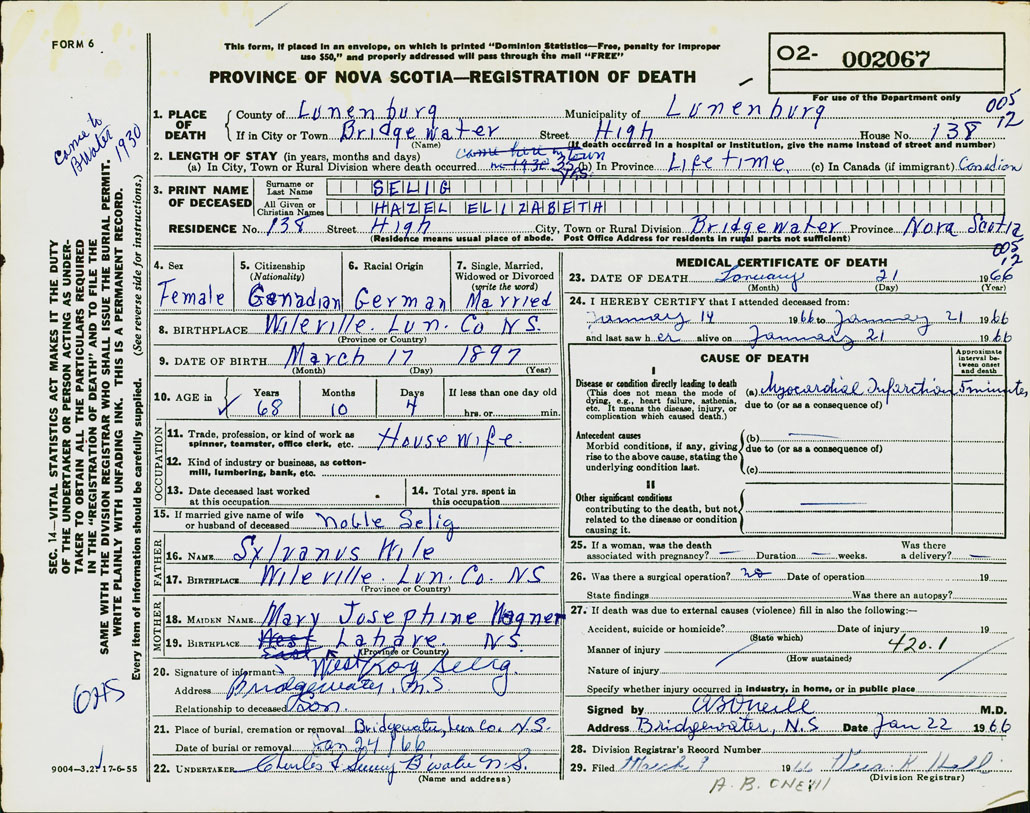 FORM 6
This form, if placed in an envelope, on which is printed "Dominion Statistics—Free, penalty for improper
use $50," and properly addressed will pass through the mail "FREE"
PROVINCE OF NOVA SCOTIA—REGISTRATION OF DEATH
02- 002067
For use of the Department only
005
12
came to
B'water
1930
SEC. 14—VITAL STATISTICS ACT MAKES IT THE DUTY
OF THE UNDERTAKER OR PERSON ACTING AS UNDER-
TAKER TO OBTAIN ALL THE PARTICULARS REQUIRED
IN THE "REGISTRATION OF DEATH" AND TO FILE THE
SAME WITH THE DIVISION REGISTRAR WHO SHALL ISSUE THE BURIAL PERMIT.
WRITE PLAINLY WITH UNFADING INK. THIS IS A PERMANENT RECORD.
Every item of information should be carefully supplied. (See reverse side for instructions.)
1. PLACE OF DEATH
County of Lunenburg Municipality of Lunenburg
If in City or Town Bridgewater Street High House No. 138
(Name) (If death occurred in a hospital or institution, give the name instead of street and number)
2. LENGTH OF STAY (in years, months and days) came here in town
(a) In City, Town or Rural Division where death occurred in 1930 35 yrs. (b) In Province Lifetime. (c) In Canada (if immigrant) Canadian
3. PRINT NAME OF DECEASED
Surname or Last Name SELIG
All Given or Christian Names HAZEL ELIZABETH
RESIDENCE No. 138 Street High City, Town or Rural Division Bridgewater Province Nova Scotia
(Residence means usual place of abode. Post Office Address for residents in rural parts not sufficient)
005
12
4. Sex Female
5. Citizenship (Nationality) Canadian
6. Racial Origin German
7. Single, Married, Widowed or Divorced (write the word) Married
8. BIRTHPLACE Wileville. Lun. Co NS.
(Province or Country)
9. DATE OF BIRTH March 17 1897
(Month) (Day) (Year)
10. AGE in Years 68 Months 10 Days 4 If less than one day old hrs. or min.
OCCUPATION
11. Trade, profession, or kind of work as spinner, teamster, office clerk, etc. House wife.
12. Kind of industry or business, as cotton-mill, lumbering, bank, etc.
13. Date deceased last worked at this occupation
14. Total yrs. spent in this occupation
15. If married give name of wife or husband of deceased Noble Selig
FATHER
16. NAME Sylvanus Wile
17. BIRTHPLACE Wileville. Lun. Co. NS
(Province or Country)
MOTHER
18. MAIDEN NAME Mary Josephine Wagner
19. BIRTHPLACE West Lahave. NS.
(Province or Country) West
20. Signature of informant Roy Selig
Address Bridgewater, N.S
Relationship to deceased Son.
21. Place of burial, cremation or removal Bridgewater, Lun Co. N.S.
Date of burial or removal Jan 24/66
22. UNDERTAKER B'water N.S.
(Name and address)
9004—3.2 17-6-55
MEDICAL CERTIFICATE OF DEATH
23. DATE OF DEATH January 21 1966
(Month) (Day) (Year)
24. I HEREBY CERTIFY that I attended deceased from:
January 14 1966 to January 21 1966
and last saw her alive on January 21 1966
CAUSE OF DEATH
Approximate interval between onset and death
I
Disease or condition directly leading to death
(This does not mean the mode of dying, e.g., heart failure, asthenia, etc. It means the disease, injury, or complication which caused death.)
(a) Myocardial Infarction 5 minutes
due to (or as a consequence of)
Antecedent causes
Morbid conditions, if any, giving rise to the above cause, stating the underlying condition last.
(b)
due to (or as a consequence of)
(c)
II
Other significant conditions
contributing to the death, but not related to the disease or condition causing it.
25. If a woman, was the death associated with pregnancy? — Duration — weeks. Was there a delivery? —
26. Was there a surgical operation? no Date of operation 19
State findings Was there an autopsy?
27. If death was due to external causes (violence) fill in also the following:—
Accident, suicide or homicide? Date of injury 19
(State which)
Manner of injury 420.1
(How sustained)
Nature of injury
Specify whether injury occurred in industry, in home, or in public place
Signed by AB O'Neill M.D.
Address Bridgewater, N.S Date Jan 22 1966
28. Division Registrar's Record Number
29. Filed March 1966 Hall
(Division Registrar)
A. B. ONEILL